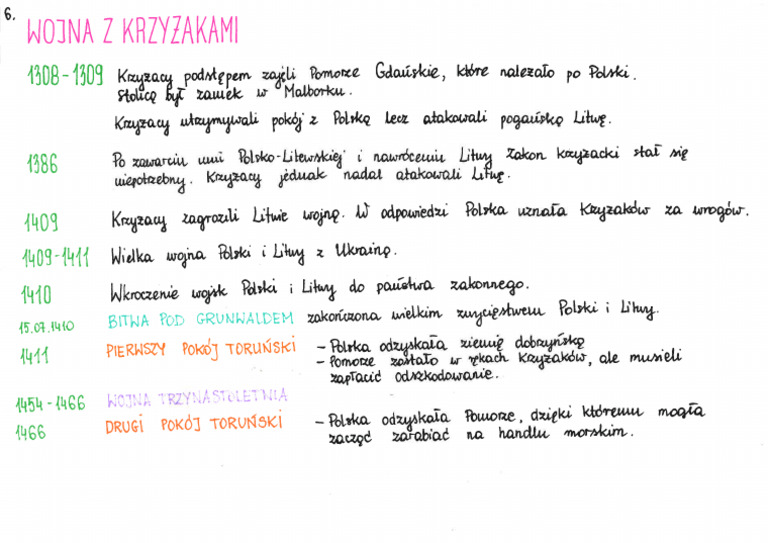 6.
WOJNA Z KRZYŻAKAMI
1308-1309 Krzyżacy podstępem zajęli Pomorze Gdańskie, które należało po Polski.
Stolicą był zamek w Malborku.
Krzyżacy utrzymywali pokój z Polską lecz atakowali pogańską Litwę.
1386 Po zawarciu unii Polsko-Litewskiej i nawróceniu Litwy Zakon krzyżacki stał się
niepotrzebny. Krzyżacy jednak nadal atakowali Litwę.
1409 Krzyżacy zagrozili Litwie wojną. W odpowiedzi Polska uznała Krzyżaków za wrogów.
1409-1411 Wielka wojna Polski i Litwy z Ukrainą.
1410 Wkroczenie wojsk Polski i Litwy do państwa zakonnego.
15.07.1410 BITWA POD GRUNWALDEM zakończona wielkim zwycięstwem Polski i Litwy.
1411 PIERWSZY POKÓJ TORUŃSKI - Polska odzyskała ziemię dobrzyńską
- Pomorze zostało w rękach Krzyżaków, ale musieli
zapłacić odszkodowanie.
1454-1466 WOJNA TRZYNASTOLETNIA
1466 DRUGI POKÓJ TORUŃSKI - Polska odzyskała Pomorze, dzięki któremu mogła
zacząć zarabiać na handlu morskim.